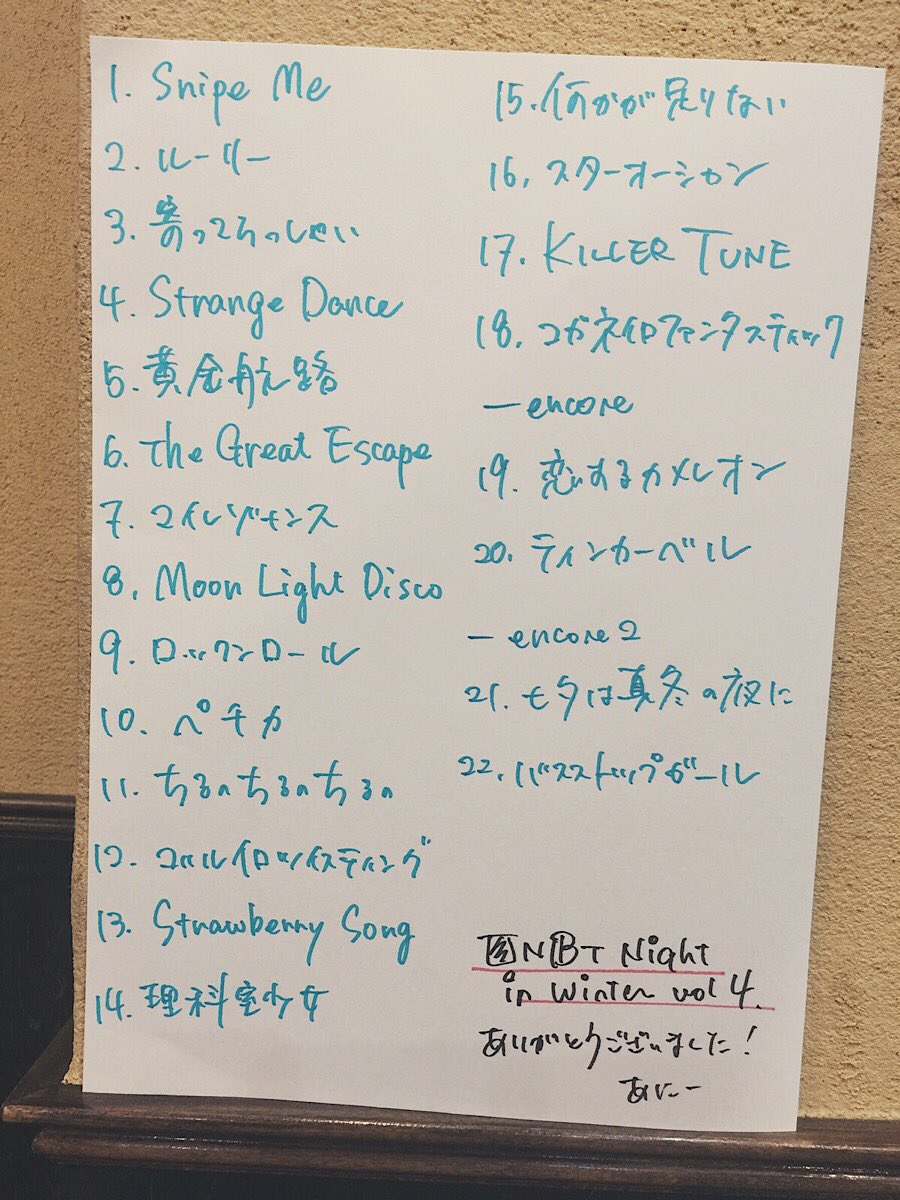 1. Snipe Me
2. ルーリー
3. 寄ってらっしゃい
4. Strange Dance
5. 黄金航路
6. The Great Escape
7. コイレゾナンス
8. Moon Light Disco
9. ロックンロール
10. ペチカ
11. ちるのちるのちるの
12. コハルイロツイスティング
13. Strawberry Song
14. 理科室少女
15. 何かが足りない
16. スターオーシャン
17. KILLER TUNE
18. コガネイロファンタスティック
— encore
19. 恋するカメレオン
20. ティンカーベル
— encore 2
21. 七夕は真冬の夜に
22. バスストップガール
NBT Night
in Winter vol 4.
ありがとうございました!
あにー